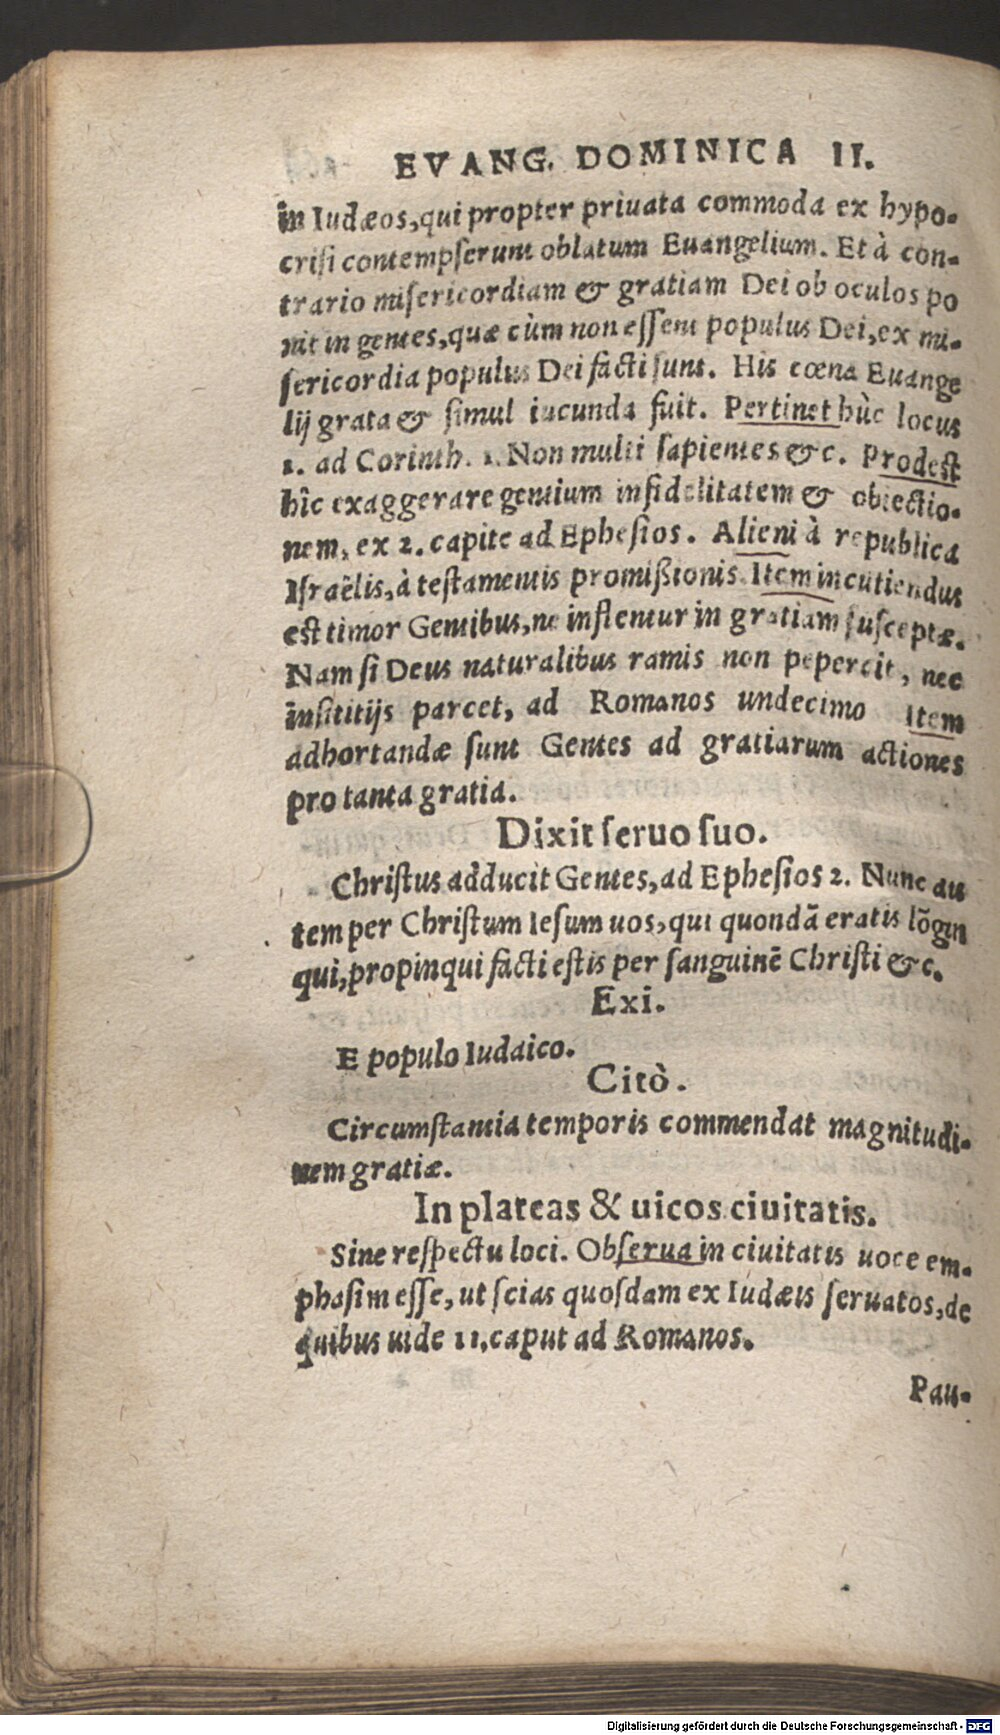 EVANG. DOMINICA II.
in Iudæos, qui propter priuata commoda ex hypo-
crisi contempserunt oblatum Euangelium. Et à con-
trario misericordiam & gratiam Dei ob oculos po
nit in gentes, quæ cùm non essent populus Dei, ex mi-
sericordia populus Dei facti sunt. His cœna Euange
lij grata & simul iucunda fuit. Pertinet hùc locus
1. ad Corinth. 1. Non multi sapientes &c. Prodest
hîc exaggerare gentium infidelitatem & obiectio-
nem, ex 2. capite ad Ephesios. Alieni à republica
Israëlis, à testamentis promißionis. Item incutiendus
est timor Gentibus, ne inflentur in gratiam susceptæ.
Nam si Deus naturalibus ramis non pepercit, nec
insititijs parcet, ad Romanos undecimo Item
adhortandæ sunt Gentes ad gratiarum actiones
pro tanta gratia.
Dixit seruo suo.
Christus adducit Gentes, ad Ephesios 2. Nunc au
tem per Christum Iesum uos, qui quondã eratis lõgin
qui, propinqui facti estis per sanguinẽ Christi &c.
Exi.
E populo Iudaico.
Citò.
Circumstantia temporis commendat magnitudi-
nem gratiæ.
In plateas & uicos ciuitatis.
Sine respectu loci. Obserua in ciuitatis uoce em-
phasim esse, ut scias quosdam ex Iudæis seruatos, de
quibus uide 11. caput ad Romanos.
Pau-
Digitalisierung gefördert durch die Deutsche Forschungsgemeinschaft - DFG